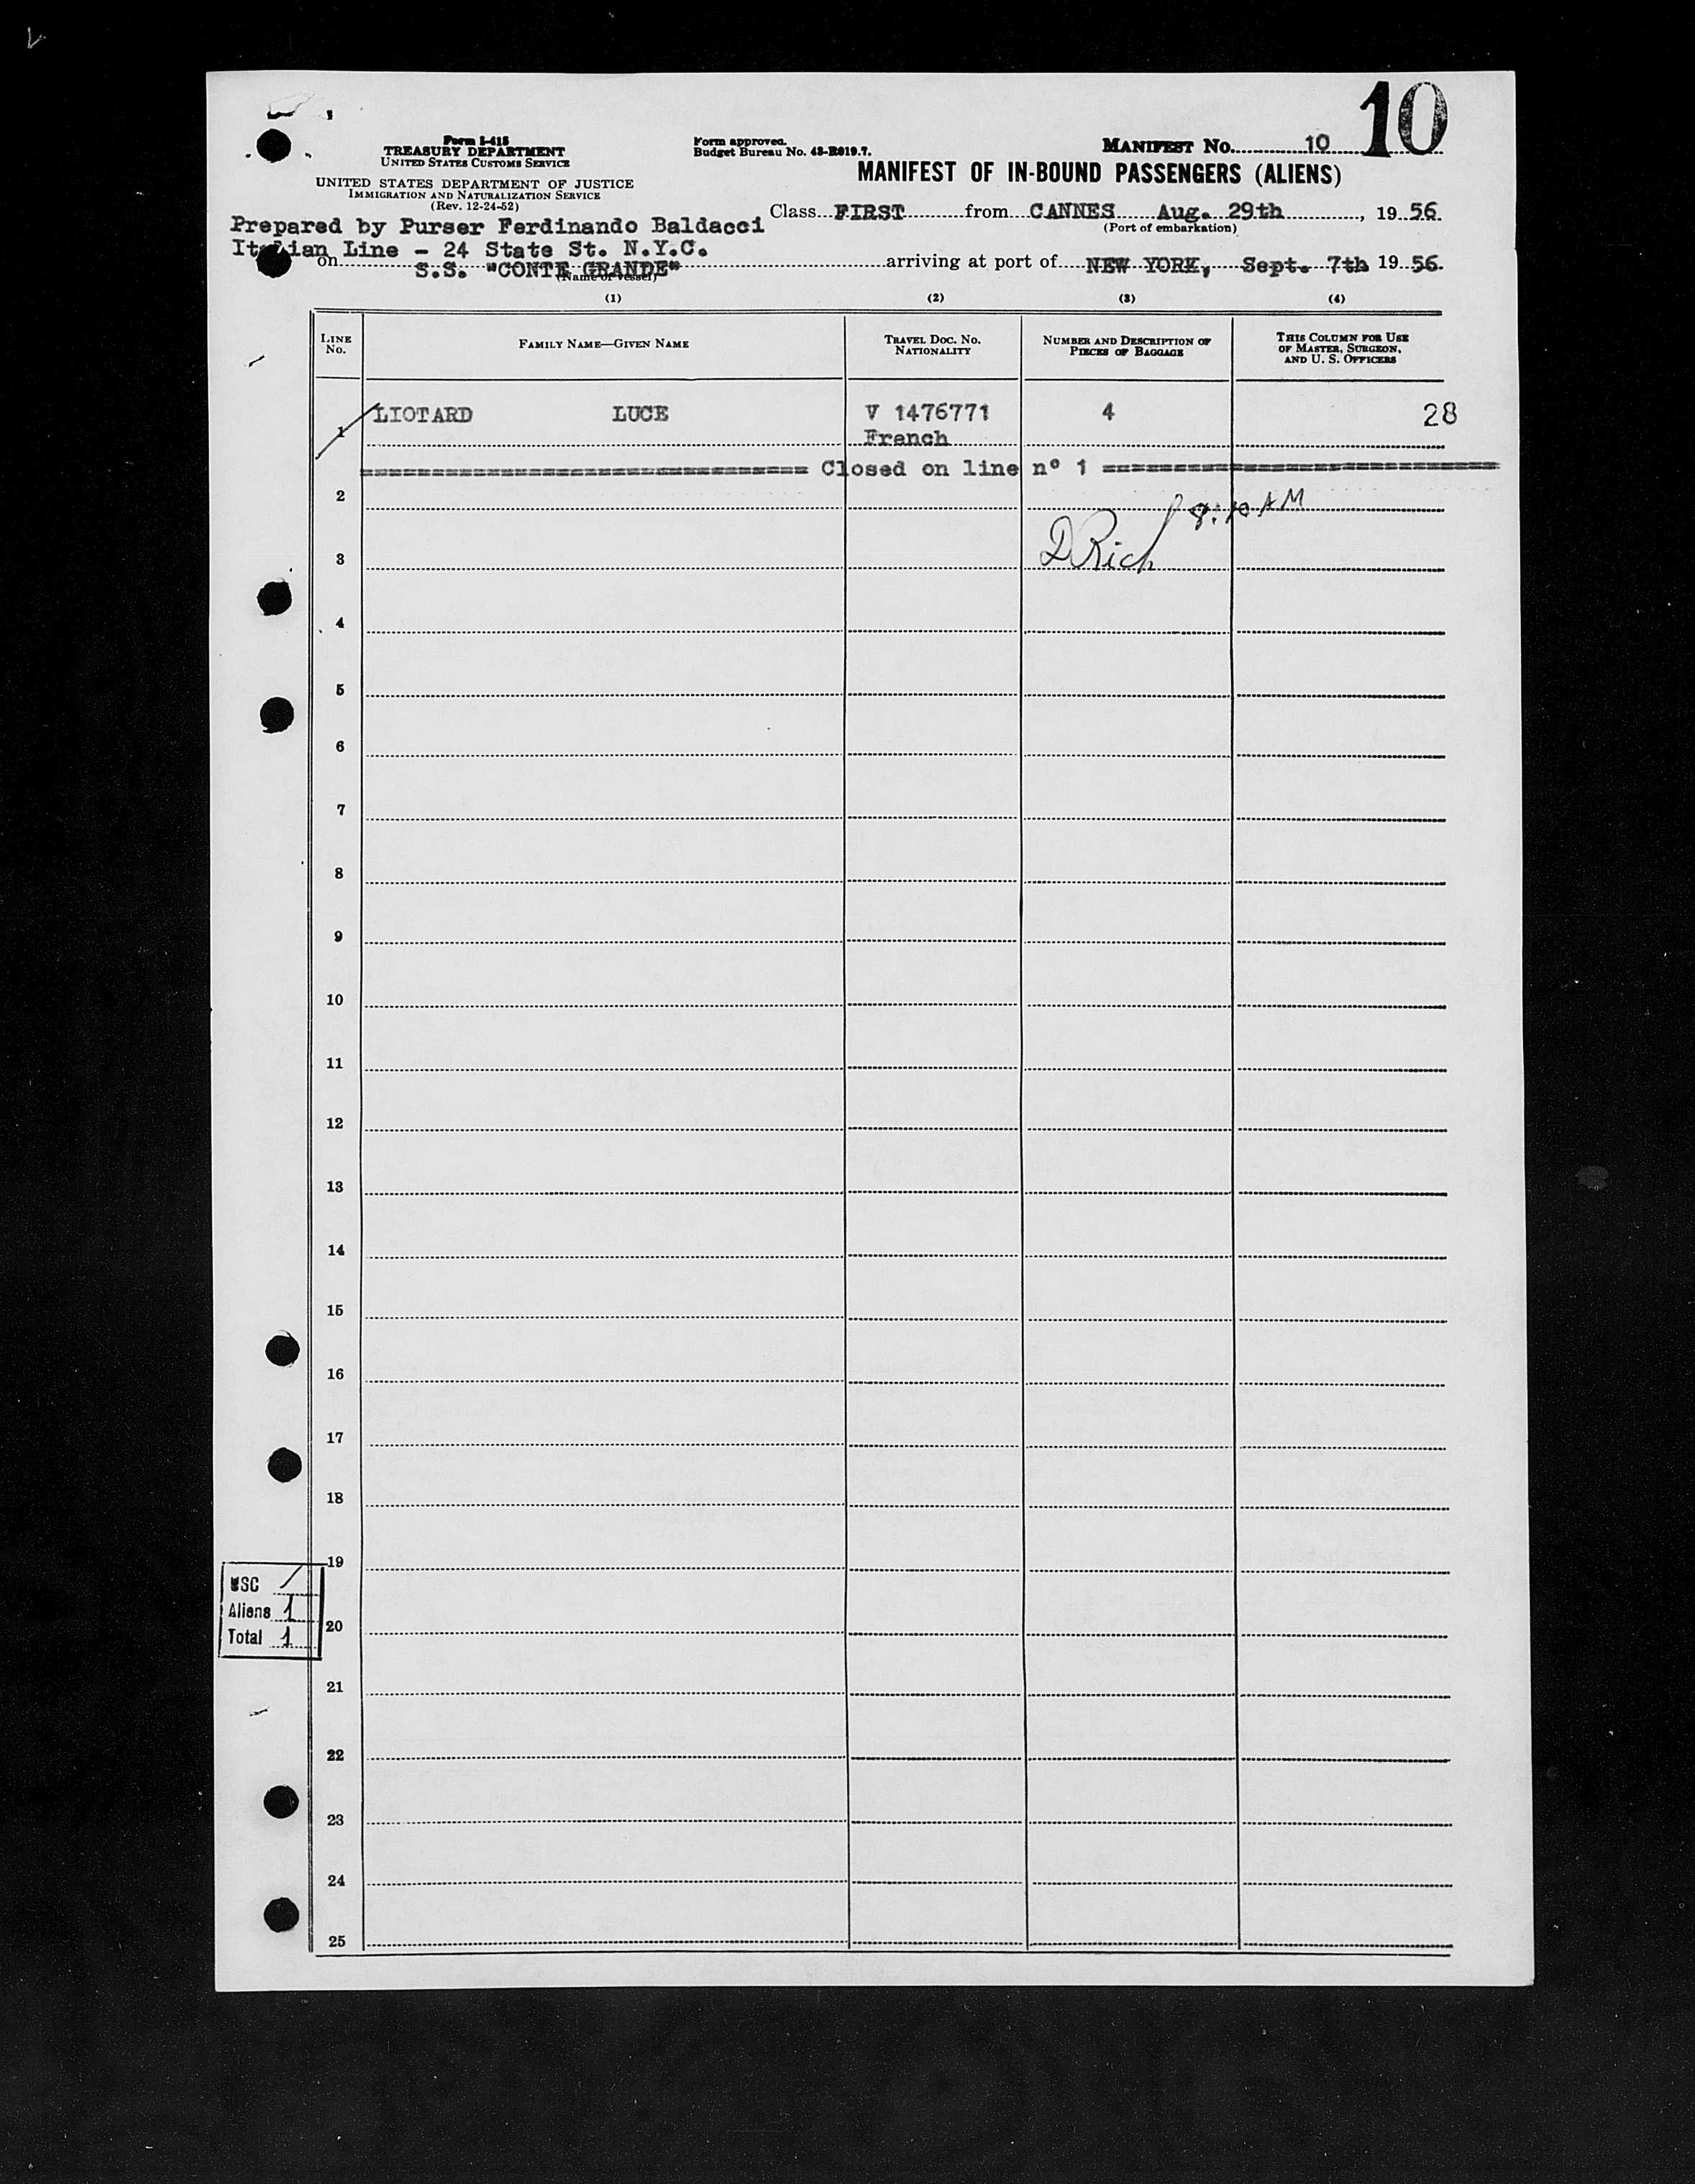 10
Form I-418
TREASURY DEPARTMENT
UNITED STATES CUSTOMS SERVICE
UNITED STATES DEPARTMENT OF JUSTICE
IMMIGRATION AND NATURALIZATION SERVICE
(Rev. 12-24-52)
Form approved.
Budget Bureau No. 43-R019.7.
MANIFEST NO. 10
MANIFEST OF IN-BOUND PASSENGERS (ALIENS)
Prepared by Purser Ferdinando Baldacci
Italian Line - 24 State St. N.Y.C.
Class FIRST from CANNES Aug. 29th, 19 56
(Port of embarkation)
on S.S. "CONTE GRANDE" arriving at port of NEW YORK, Sept. 7th 19 56.
(Name of vessel)
(1) (2) (3) (4)
LINE NO. FAMILY NAME—GIVEN NAME TRAVEL DOC. NO. NATIONALITY NUMBER AND DESCRIPTION OF PIECES OF BAGGAGE THIS COLUMN FOR USE OF MASTER, SURGEON, AND U. S. OFFICERS
1 LIOTARD LUCE V 1476771 4 28
French
Closed on line nº 1
2
8:10 AM
3 D Rich
4
5
6
7
8
9
10
11
12
13
14
15
16
17
18
19
USC /
Aliens 1
20
Total 1
21
22
23
24
25